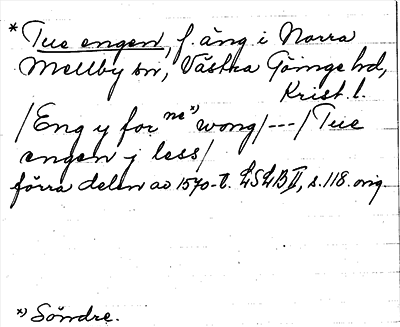 * Tue engen, f. äng i Norra
Mellby sn, Västra Göinge hd,
Krist. l.
/Eng y for ne*) wong/---/Tue
engen j less/
förra delen av 1570-t. LSLB II, s. 118. orig.
*) Söndre.